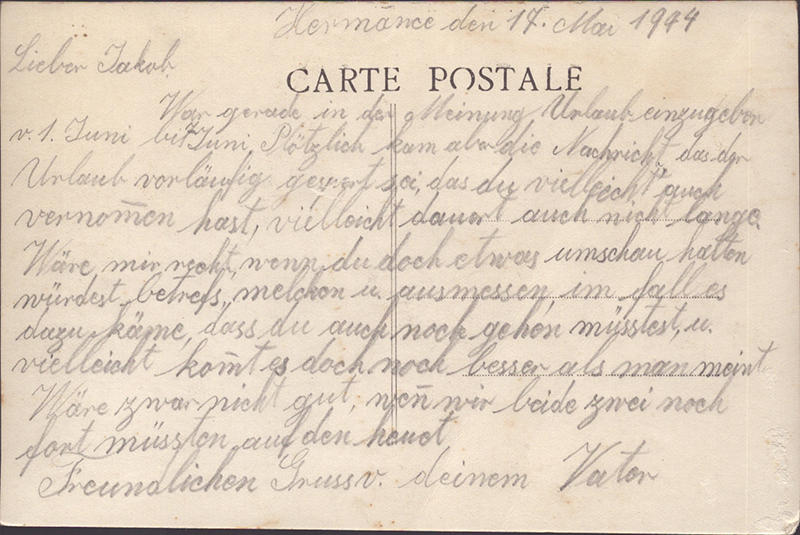 Hermance den 17. Mai 1944
Lieber Jakob
CARTE POSTALE
War gerade in der Meinung Urlaub einzugeben
v. 1. Juni bis Juni, Plötzlich kam aber die Nachricht, das der
Urlaub vorläufig gesperrt sei, das du vielleicht auch
vernom̅en hast, vielleicht dauert auch nicht lange.
Wäre mir recht, wenn du doch etwas umschau halten
würdest betrefs, melchen u. ausmessen, im fall es
dazu käme, dass du auch noch gehen müsstest, u.
vielleicht kom̅t es doch noch besser als man meint
Wäre zwar nicht gut, wen̅ wir beide zwei noch
fort müssten auf den heuet
Freundlichen Gruss v. deinem Vater